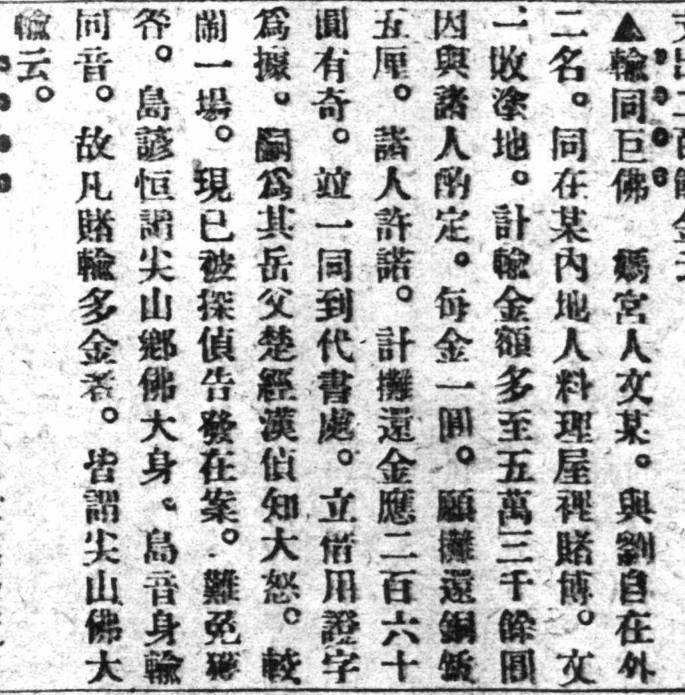 ▲輸同巨佛　媽宮人文某。與劉自在外
二名。同在某內地人料理屋裡賭博。文
一敗塗地。計輸金額多至五萬三千餘圓
因與諸人酌定。每金一圓。願攤還銅銭
五厘。諸人許諾。計攤還金應二百六十
圓有奇。竝一同到代書處。立借用證字
爲據。嗣爲其岳父楚經漢偵知大怒。較
鬧一場。現已被探偵告發在案。難免獲
咎。島諺恒謂尖山鄉佛大身。島音身輸
同音。故凡賭輸多金者。皆謂尖山佛大
輸云。